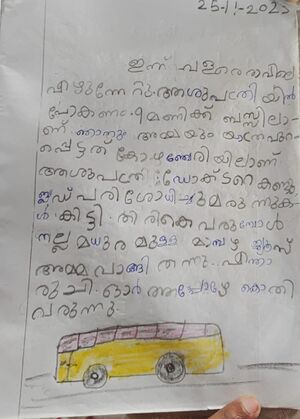 25-11-2025
ഇന്ന് വളരെ രാവിലെ
എഴുന്നേറ്റു. ആശുപത്രിയിൽ
പോകണം. 9 മണിക്ക് ബസ്സിലാ-
ണ് ഞാനും അമ്മയും യാത്രപുറ-
പ്പെട്ടത് കോഴഞ്ചേരിയിലാണ്
ആശുപത്രി. ഡോക്ടറെ കണ്ടു
ബ്ലഡ് പരിശോധിച്ചു മരുന്നുക-
ൾ കിട്ടി. തിരികെ വരുമ്പോൾ
നല്ല മധുരമുള്ള മാമ്പഴ ജൂസ്
അമ്മ വാങ്ങി തന്നു. എന്താ
രുചി. ഓർ അപ്പോഴേ കൊതി
വരുന്നു.